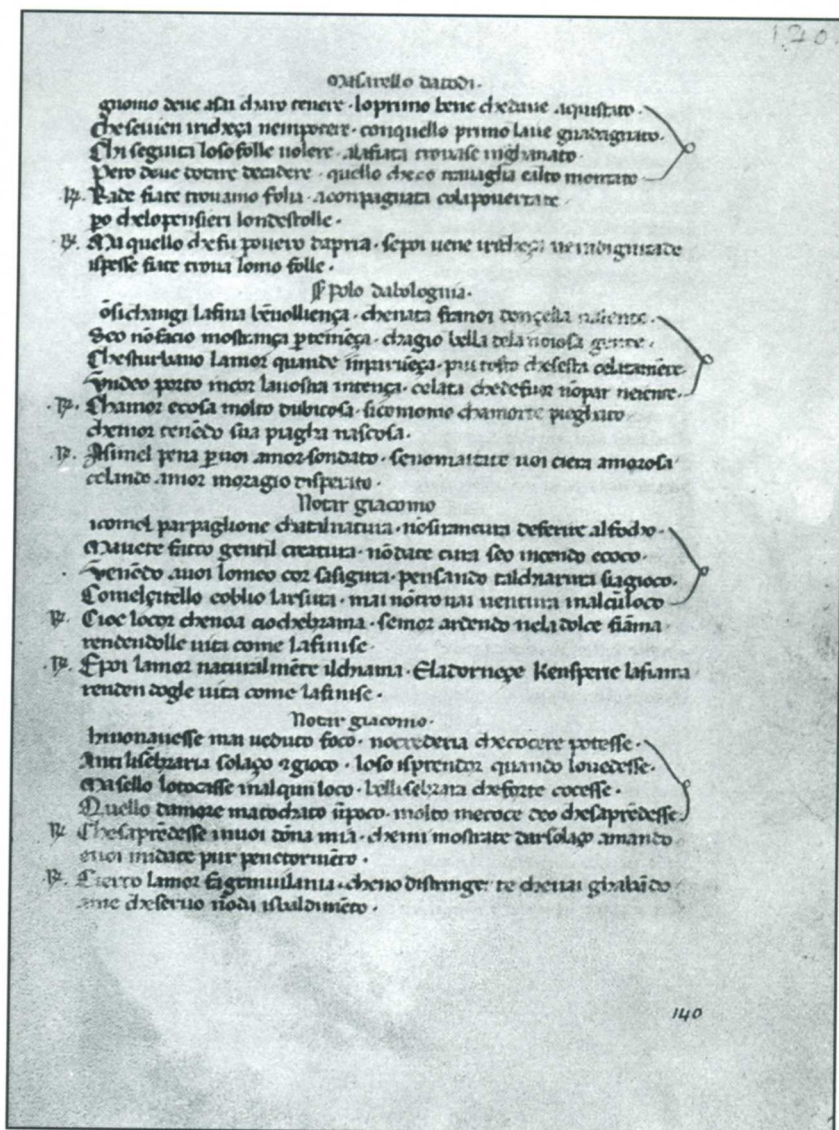 Masarello datodi·
gnomo deue asai charo tenere · loprimo bene chedaue aquistato·
Che seuien inricheça nempotere · conquello primo laue guadagnato·
Chi seguita loso folle uolere · alafiata trouase inghanato·
Pero deue dotare decadere · quello checo trauaglia ealto montato
Rade fiate trouamo folia · acompagnata cola pouertate
po chelo pensieri londestolle·
Ma quello chefu pouero dapria · sepoi uene
ispesse fiate troua lomo folle·
polo dabolognia·
osichangi lafina bẽuolliença · chenata franoi donçella
Seo nõfacio mostrança · chagio bella dela noiosa gente·
Chesturbano lamor quande · piu tosto chesesta celatamẽte·
porto incor lauostra intença · celata chedefuor nõpar neiente·
Chamor ecosa molto dubitosa · sicomomo chamorte piaghato
chemor tenẽdo sua piagha nascosa·
pena uoi amor · uoi ciera amorosa
celando amor moragio disperato·
Notar giacomo
icomel parpaglione chatalnatura · nõsirancura deferire alfocho·
Mauete fatto gentil creatura · nõdate cura seo incendo ecoco·
Venẽdo auoi lomeo cor sasigura · pensando talchiarura siagioco·
Come lçitello oblio larsura · mai nõtrouai uentura inalcũ loco
Cioe locor chenoa ciochebrama · semor ardendo nela dolce fiãma
rendendolle uita come lafinise·
Epoi lamor naturalmẽte ilchiama · Kensperte lafiama
renden dogle uita come lafinise·
Notar giacomo·
hinonauesse mai ueduto foco · nocrederia checocere potesse·
Anti lisẽbraria solaço gioco · loso isprendor quando louedesse·
Masello locasse inalqun loco · belli sebrara cheforte cocesse·
Quello damore matochato ũpoco · molto mecoce deo chesaprẽdesse·
Chesaprẽdesse inuoi dõna mia · chemi mostrate darsolaço amando
euoi midate pur penetormẽto·
Cierto lamor fagranuilania · cheno distringe te cheuai ghabãdo
ame cheseruo nõda isbaldimẽto·
140